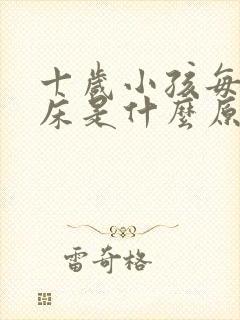 十歲小孩每
床是什麼原
雷奇格